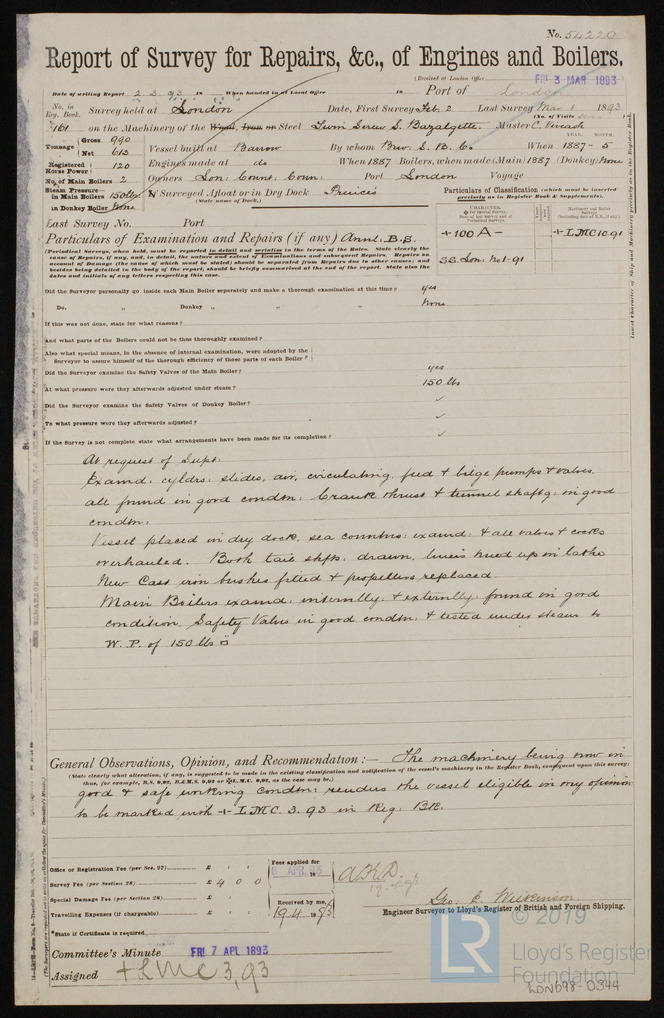 No. 54220
Report of Survey for Repairs, &c., of Engines and Boilers.
(Received at London Office FRI 3 MAR 1893
Date of writing Report 2.3.93 in When handed in at Local Office in Port of London
No. in Reg. Book. Survey held at London Date, First Survey Feb. 2 Last Survey Mar 1 1893
(No. of Visits
161 on the Machinery of the Wood, Iron or Steel Twin Screw S. Bazalgette. Master C.
Tonnage Gross 990 Net 613 Vessel built at Barrow By whom Brw. S. B. Co. When 1887 - 5
YEAR. MONTH.
Registered Horse Power 120 Engines made at do When 1887 Boilers, when made (Main) 1887 (Donkey) None
No. of Main Boilers 2 Owners Lon: County Coun: Port London Voyage
Steam Pressure in Main Boilers 150 lbs If Surveyed Afloat or in Dry Dock
(State name of Dock.)
in Donkey Boiler None
Last Survey No. Port
Particulars of Classification (which must be inserted precisely as in Register Book & Supplements).
CHARACTER.
Machinery and Boiler Surveys
+100 A - +LMC 10.91
SS. Lon: No 1-91
Particulars of Examination and Repairs (if any) Annl: B.S.
(Periodical Surveys, when held, must be reported in detail and seriatim in the terms of the Rules. State clearly the
cause of Repairs, if any, and, in detail, the nature and extent of Examinations and subsequent Repairs. Repairs on
account of Damage (the cause of which must be stated) should be separated from Repairs due to other causes; and
besides being detailed in the body of the report, should be briefly summarised at the end of the report. State also the
dates and initials of any letters respecting this case.
Did the Surveyor personally go inside each Main Boiler separately and make a thorough examination at this time? yes
Do. „ Donkey „ „ „ None
If this was not done, state for what reasons?
And what parts of the Boilers could not be thus thoroughly examined?
Also what special means, in the absence of internal examination, were adopted by the
Surveyor to assure himself of the thorough efficiency of those parts of each Boiler?
Did the Surveyor examine the Safety Valves of the Main Boiler? yes
At what pressure were they afterwards adjusted under steam? 150 lbs
Did the Surveyor examine the Safety Valves of Donkey Boiler? ✓
To what pressure were they afterwards adjusted? ✓
If the Survey is not complete state what arrangements have been made for its completion? ✓
At request of Supt.
Examd. cyldrs. slides, air, circulating, feed & bilge pumps & valves.
all found in good condtn: Crank thrust & tunnel shaftg: in good
condtn:
Vessel placed in dry dock, sea connctns: examd: & all valves & cocks
overhauled. Both tail shfts: drawn, liners trued up in lathe
New Cast iron bushes fitted & propellers replaced.
Main Boilers examd: internally & externally: found in good
condition, Safety Valves in good condtn: & tested under steam to
W. P. of 150 lbs
General Observations, Opinion, and Recommendation:— The machinery being now in
(State clearly what alteration, if any, is suggested to be made in the existing classification and notification of the vessel's machinery in the Register Book, consequent upon this survey:
thus, for example, B.S. 9,92, B.&M.S. 9,92 or L.M.C. 9,92, as the case may be.)
good & safe working condtn: renders the vessel eligible in my opinion
to be marked with + LMC 3.93 in Reg: BK.
Office or Registration Fee (per Sec. 27) £
Survey Fee (per Section 28) £ 4 0 0
Special Damage Fee (per Section 28) £
Travelling Expenses (if chargeable) £
Fees applied for
Received by me,
19.4.1893
Geo. C. Wilkinson
Engineer Surveyor to Lloyd's Register of British and Foreign Shipping.
*State if Certificate is required
Committee's Minute FRI 7 APL 1893
Assigned +LMC 3,93
LR
© 2019
Lloyd's Register
Foundation
LDN698-0344